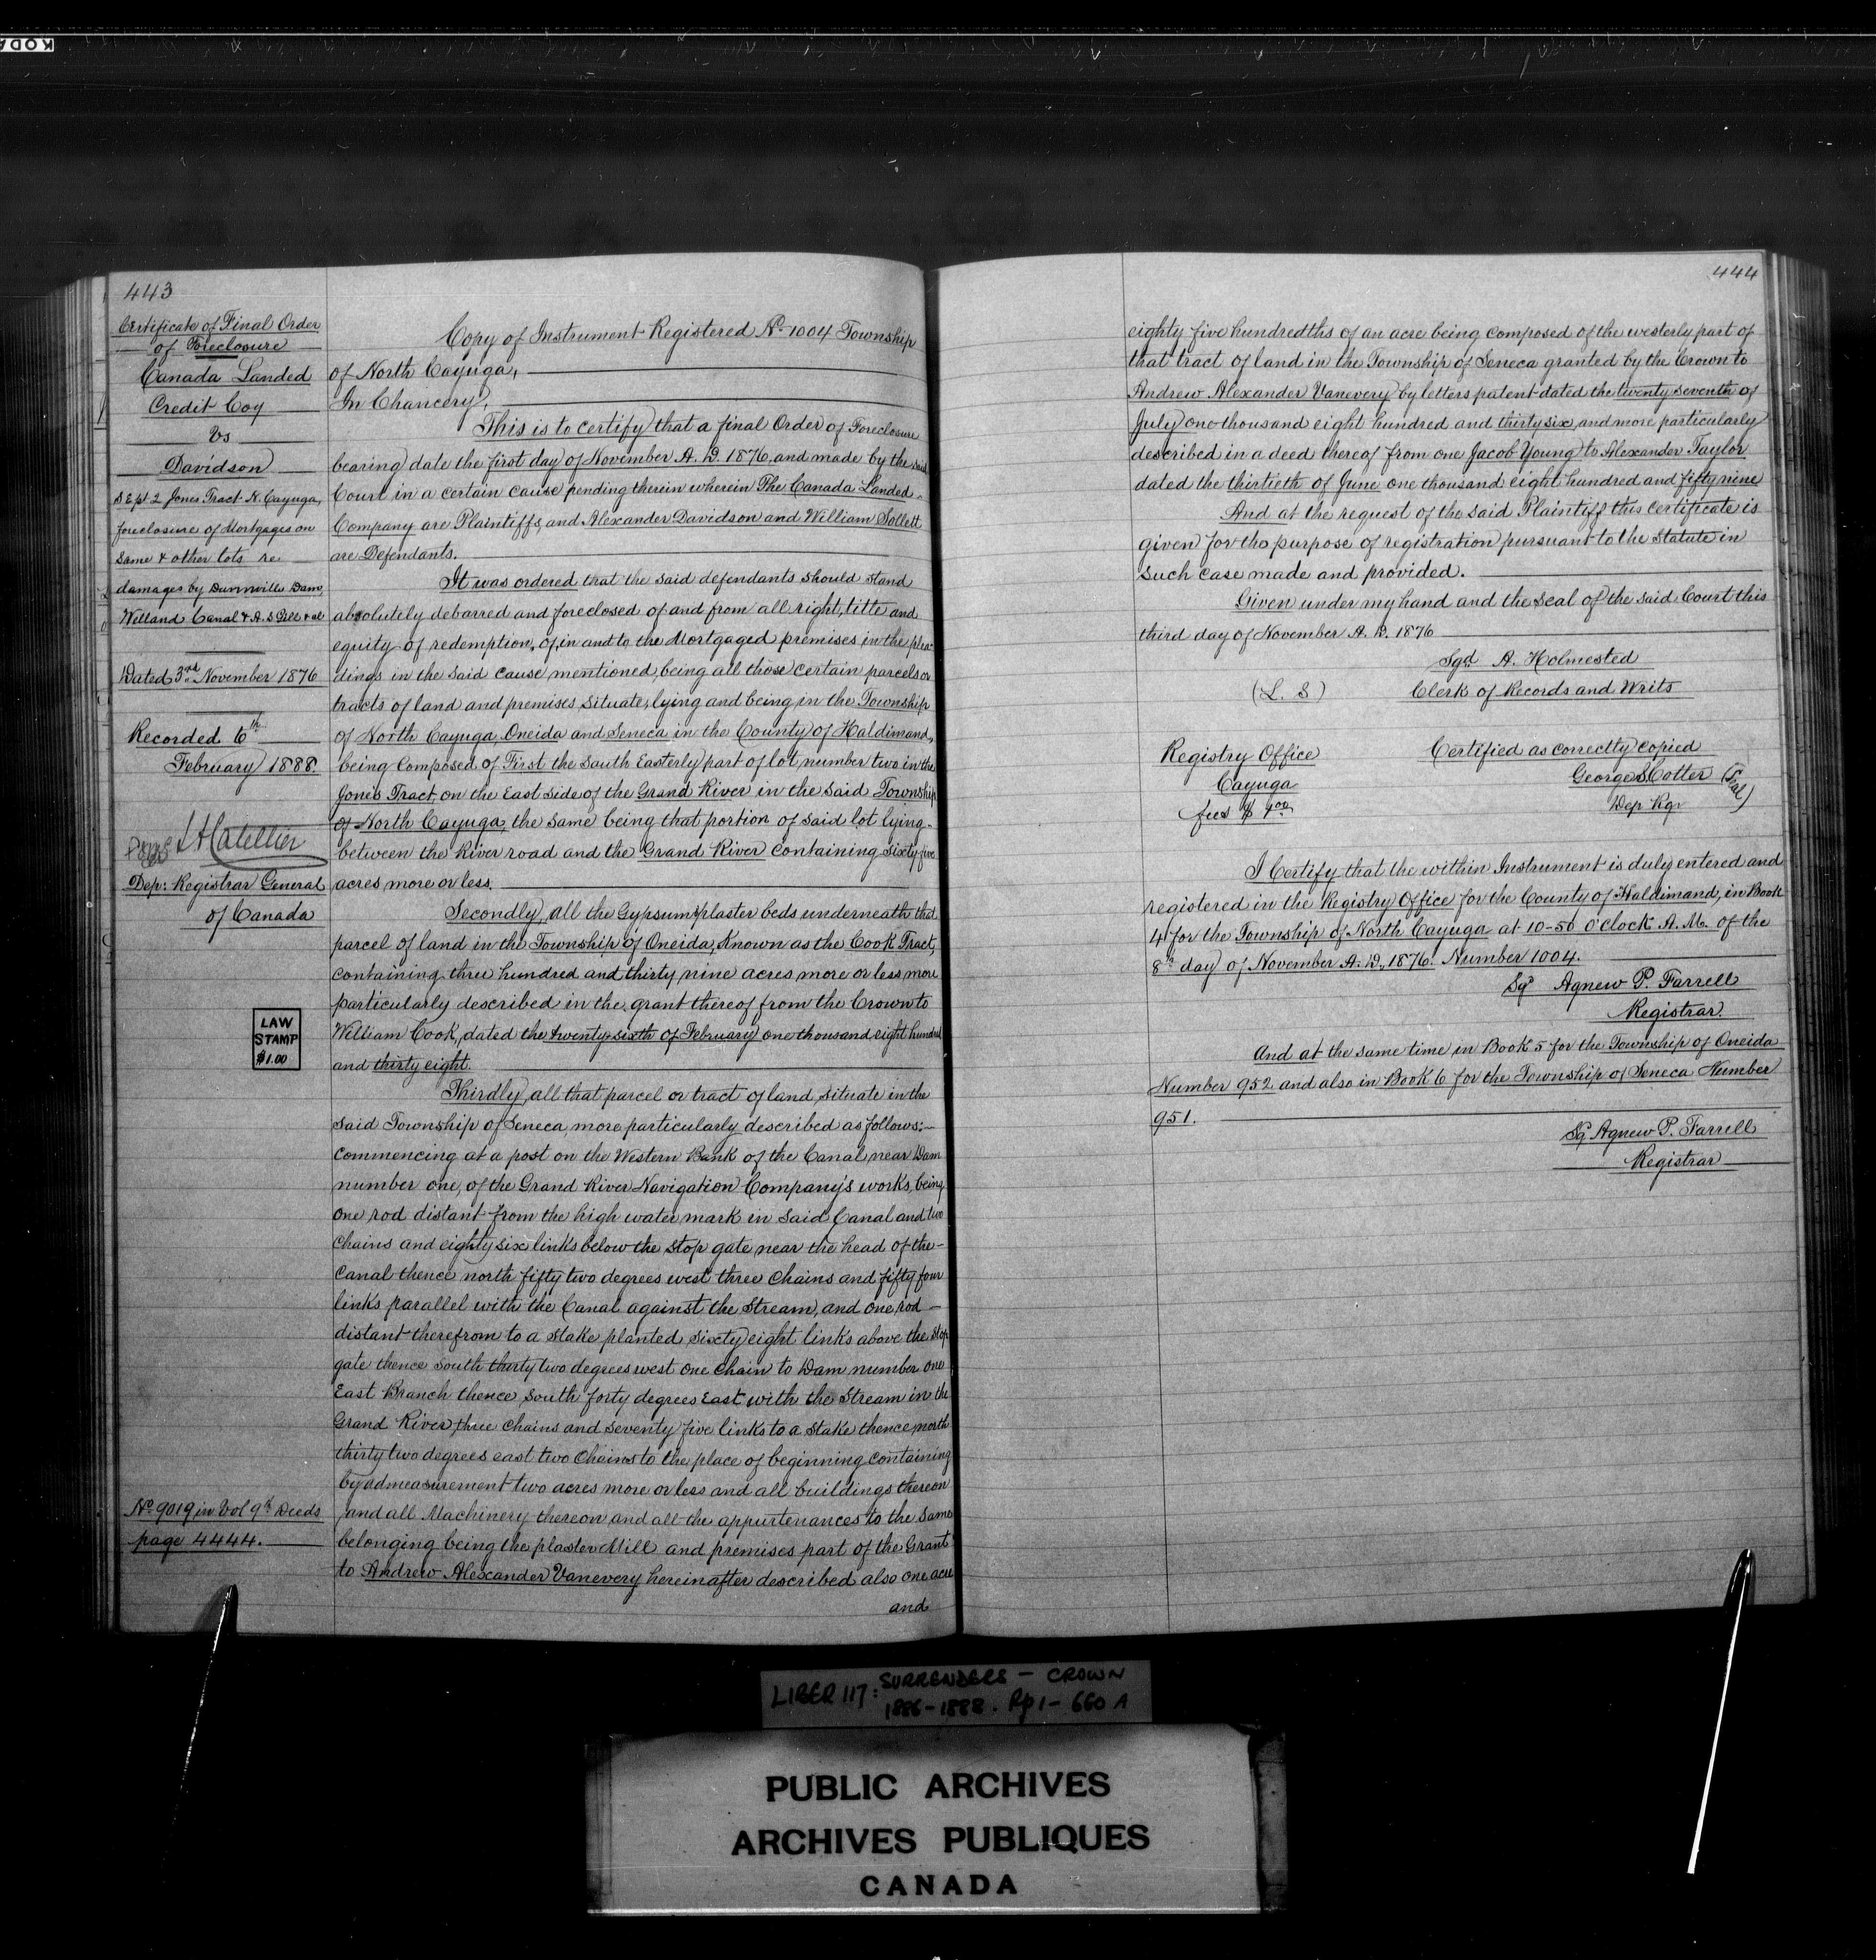 443
Certificate of Final Order
of Foreclosure
Canada Landed
Credit Coy
Vs
Davidson
S E pt 2 Jones Tract N. Cayuga,
foreclosure of Mortgages on
same & other lots re
damages by Dunnville Dam,
Welland Canal & A. S Gill et al
Dated 3rd November 1876
Recorded 6th
February 1888.
Dep: Registrar General
of Canada
LAW
STAMP
$1.00
No. 9019 in Vol 9th Deeds
page 4444.
Copy of Instrument Registered No. 1004 Township
of North Cayuga,
In Chancery,
This is to certify that a final Order of Foreclosure
bearing date the first day of November A. D. 1876, and made by the said
Court in a certain cause pending therein wherein The Canada Landed
Company are Plaintiffs, and Alexander Davidson and William Sollett
are Defendants.
It was ordered that the said defendants should stand
absolutely debarred and foreclosed of and from all right, title and
equity of redemption, of, in and to the Mortgaged premises in the plea-
dings in the said cause mentioned, being all those certain parcels or
tracts of land and premises situate, lying and being in the Township
of North Cayuga, Oneida and Seneca in the County of Haldimand,
being composed of First the South Easterly part of lot number two in the
Jones Tract, on the East side of the Grand River in the said Township
of North Cayuga, the same being that portion of said lot lying
between the River road and the Grand River containing sixty five
acres more or less.
Secondly, all the Gypsum & plaster beds underneath that
parcel of land in the Township of Oneida, Known as the Cook Tract,
containing three hundred and thirty nine acres more or less more
particularly described in the grant thereof from the Crown to
William Cook, dated the twenty sixth of February one thousand eight hundred
and thirty eight.
Thirdly, all that parcel or tract of land situate in the
said Township of Seneca, more particularly described as follows:—
Commencing at a post on the Western Bank of the Canal near Dam
number one, of the Grand River Navigation Company's works, being
one rod distant from the high water mark in said Canal and two
chains and eighty six links below the stop gate near the head of the
Canal thence north fifty two degrees west three chains and fifty four
links parallel with the Canal against the Stream, and one rod
distant therefrom to a stake planted sixty eight links above the stop
gate thence south thirty two degrees west one chain to Dam number one
East Branch thence south forty degrees East with the Stream in the
Grand River three chains and seventy five links to a stake thence north
thirty two degrees east two chains to the place of beginning containing
by admeasurement two acres more or less and all buildings thereon
and all Machinery thereon and all the appurtenances to the same
belonging being the plaster Mill and premises part of the Grant
to Andrew Alexander Vanevery hereinafter described also one acre
and
444
eighty five hundredths of an acre being composed of the westerly part of
that tract of land in the Township of Seneca granted by the Crown to
Andrew Alexander Vanevery by letters patent dated the twenty seventh of
July one thousand eight hundred and thirty six, and more particularly
described in a deed thereof from one Jacob Young to Alexander Taylor
dated the thirtieth of June one thousand eight hundred and fifty nine
And at the request of the said Plaintiff this certificate is
given for the purpose of registration pursuant to the Statute in
such case made and provided.
Given under my hand and the seal of the said Court this
third day of November A. D. 1876
Sgd A. Holmested
(L. S) Clerk of Records and Writs
Registry Office
Cayuga
fees $ 1.00
Certified as correctly copied
George S. Cotter (Seal)
Dep Rgr
I Certify that the within Instrument is duly entered and
registered in the Registry Office for the County of Haldimand, in Book
4 for the Township of North Cayuga at 10-50 o'clock A. M. of the
8th day of November A. D., 1876. Number 1004.
Sgd Agnew P. Farrell
Registrar.
And at the same time in Book 5 for the Township of Oneida
Number 952 and also in Book 6 for the Township of Seneca Number
951.
Sgd Agnew P. Farrell
Registrar
LIBER 117: SURRENDERS - CROWN
1886-1888. Pp 1-660 A
PUBLIC ARCHIVES
ARCHIVES PUBLIQUES
CANADA